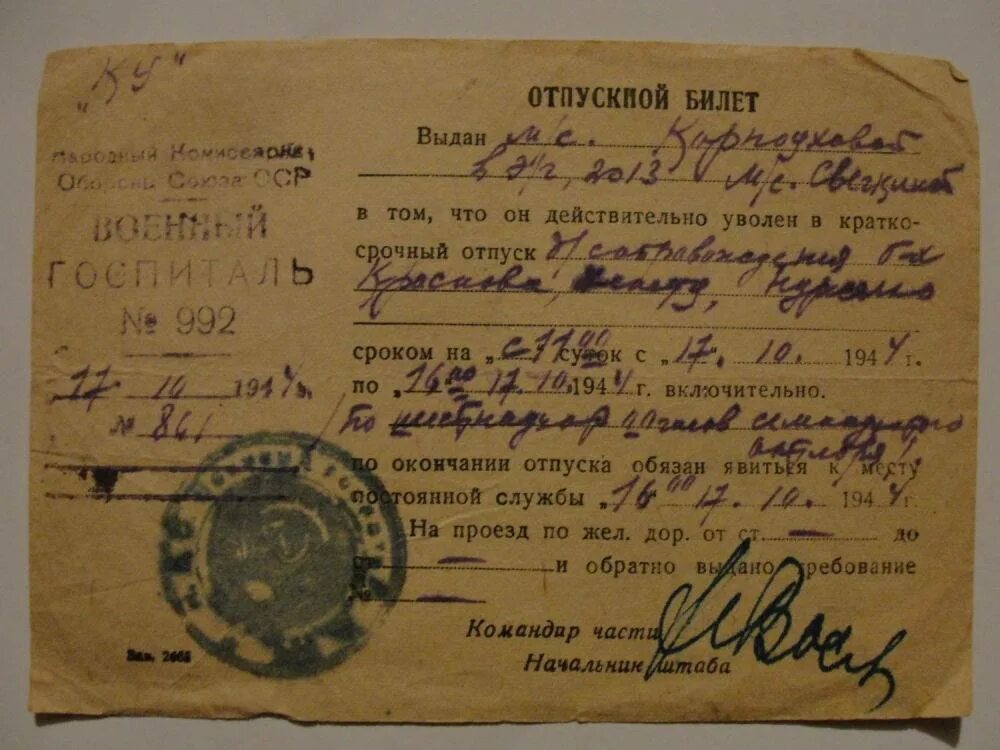 "КУ"
Народный Комиссариат
Обороны Союза ССР
ВОЕННЫЙ
ГОСПИТАЛЬ
№ 992
17 10 1944 г.
№ 861
Зак. 2665
ОТПУСКНОЙ БИЛЕТ
Выдан м/с. Карпоуховой
в эг, 2013 м/с.
в том, что он действительно уволен в кратко-
срочный отпуск сопровождения б-х
Краснова,
сроком на „с 11 00 суток с „17". 10. 1944 г.
по „16 00 17.10.1944 г. включительно.
По шестнадцать часов семнадцатого
октября
по окончании отпуска обязан явиться к месту
постоянной службы „16 00 17. 10. 1944 г.
На проезд по жел. дор. от ст. — до
— и обратно выдано требование
—
Командир части
Начальник штаба